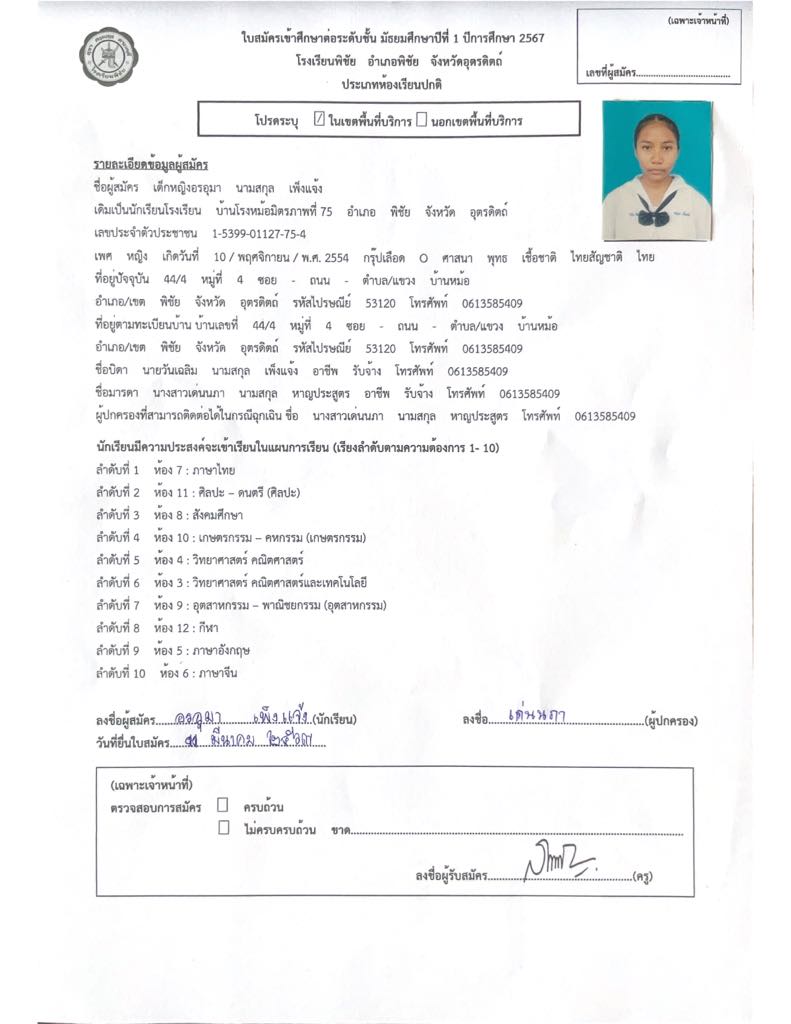 ใบสมัครเข้าศึกษาต่อระดับชั้น มัธยมศึกษาปีที่ 1 ปีการศึกษา 2567
โรงเรียนพิชัย อำเภอพิชัย จังหวัดอุตรดิตถ์
ประเภทห้องเรียนปกติ
(เฉพาะเจ้าหน้าที่)
เลขที่ผู้สมัคร
โปรดระบุ ในเขตพื้นที่บริการ นอกเขตพื้นที่บริการ
รายละเอียดข้อมูลผู้สมัคร
ชื่อผู้สมัคร เด็กหญิงอรอุมา นามสกุล เพ็งแจ้ง
เดิมเป็นนักเรียนโรงเรียน บ้านโรงหม้อมิตรภาพที่ 75 อำเภอ พิชัย จังหวัด อุตรดิตถ์
เลขประจำตัวประชาชน 1-5399-01127-75-4
เพศ หญิง เกิดวันที่ 10 / พฤศจิกายน / พ.ศ. 2554 กรุ๊ปเลือด O ศาสนา พุทธ เชื้อชาติ ไทยสัญชาติ ไทย
ที่อยู่ปัจจุบัน 44/4 หมู่ที่ 4 ซอย - ถนน - ตำบล/แขวง บ้านหม้อ
อำเภอ/เขต พิชัย จังหวัด อุตรดิตถ์ รหัสไปรษณีย์ 53120 โทรศัพท์ 0613585409
ที่อยู่ตามทะเบียนบ้าน บ้านเลขที่ 44/4 หมู่ที่ 4 ซอย - ถนน - ตำบล/แขวง บ้านหม้อ
อำเภอ/เขต พิชัย จังหวัด อุตรดิตถ์ รหัสไปรษณีย์ 53120 โทรศัพท์ 0613585409
ชื่อบิดา นายวันเฉลิม นามสกุล เพ็งแจ้ง อาชีพ รับจ้าง โทรศัพท์ 0613585409
ชื่อมารดา นางสาวเด่นนภา นามสกุล หาญประสูตร อาชีพ รับจ้าง โทรศัพท์ 0613585409
ผู้ปกครองที่สามารถติดต่อได้ในกรณีฉุกเฉิน ชื่อ นางสาวเด่นนภา นามสกุล หาญประสูตร โทรศัพท์ 0613585409
นักเรียนมีความประสงค์จะเข้าเรียนในแผนการเรียน (เรียงลำดับตามความต้องการ 1- 10)
ลำดับที่ 1 ห้อง 7 : ภาษาไทย
ลำดับที่ 2 ห้อง 11 : ศิลปะ – ดนตรี (ศิลปะ)
ลำดับที่ 3 ห้อง 8 : สังคมศึกษา
ลำดับที่ 4 ห้อง 10 : เกษตรกรรม – คหกรรม (เกษตรกรรม)
ลำดับที่ 5 ห้อง 4 : วิทยาศาสตร์ คณิตศาสตร์
ลำดับที่ 6 ห้อง 3 : วิทยาศาสตร์ คณิตศาสตร์และเทคโนโลยี
ลำดับที่ 7 ห้อง 9 : อุตสาหกรรม – พาณิชยกรรม (อุตสาหกรรม)
ลำดับที่ 8 ห้อง 12 : กีฬา
ลำดับที่ 9 ห้อง 5 : ภาษาอังกฤษ
ลำดับที่ 10 ห้อง 6 : ภาษาจีน
ลงชื่อผู้สมัคร อรอุมา เพ็งแจ้ง (นักเรียน) ลงชื่อ เด่นนภา (ผู้ปกครอง)
วันที่ยื่นใบสมัคร ๑๑ มีนาคม ๒๕๖๗
(เฉพาะเจ้าหน้าที่)
ตรวจสอบการสมัคร ครบถ้วน
ไม่ครบครบถ้วน ขาด
ลงชื่อผู้รับสมัคร (ครู)